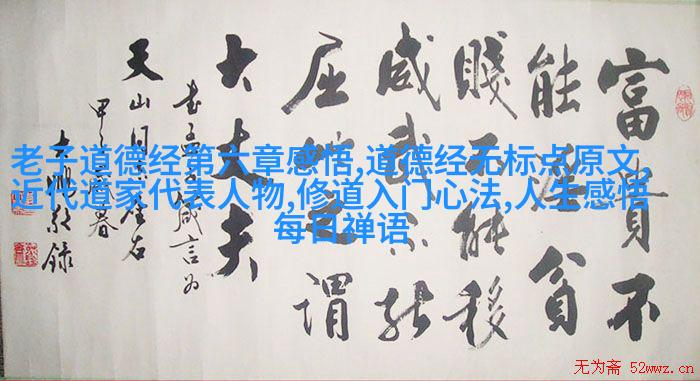 富貴不
能淫貧
賤不能移
威武不能
屈此之謂
大丈夫
書孟子箴言為
天山同志座右
老子道德经第六章感悟,道德经无标点原文
近代道家代表人物,修道入门心法,人生感悟
每日禅语
无为斋 52wwz.cn